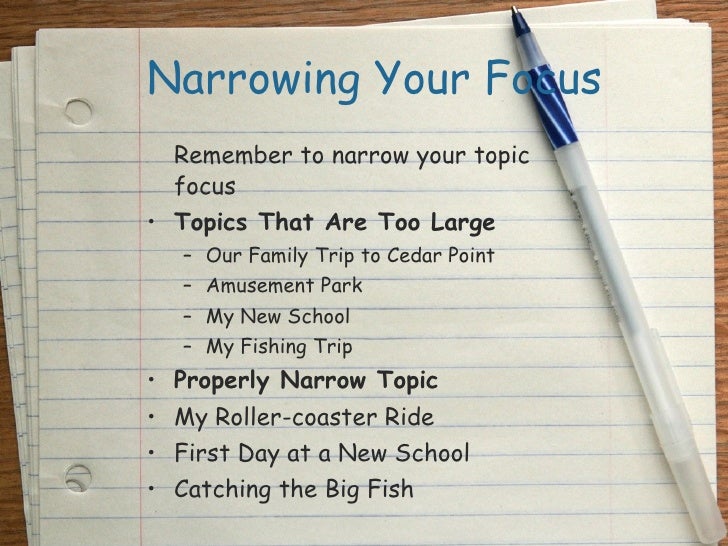 Narrowing Your Focus
Remember to narrow your topic
focus
• Topics That Are Too Large
– Our Family Trip to Cedar Point
– Amusement Park
– My New School
– My Fishing Trip
• Properly Narrow Topic
• My Roller-coaster Ride
• First Day at a New School
• Catching the Big Fish